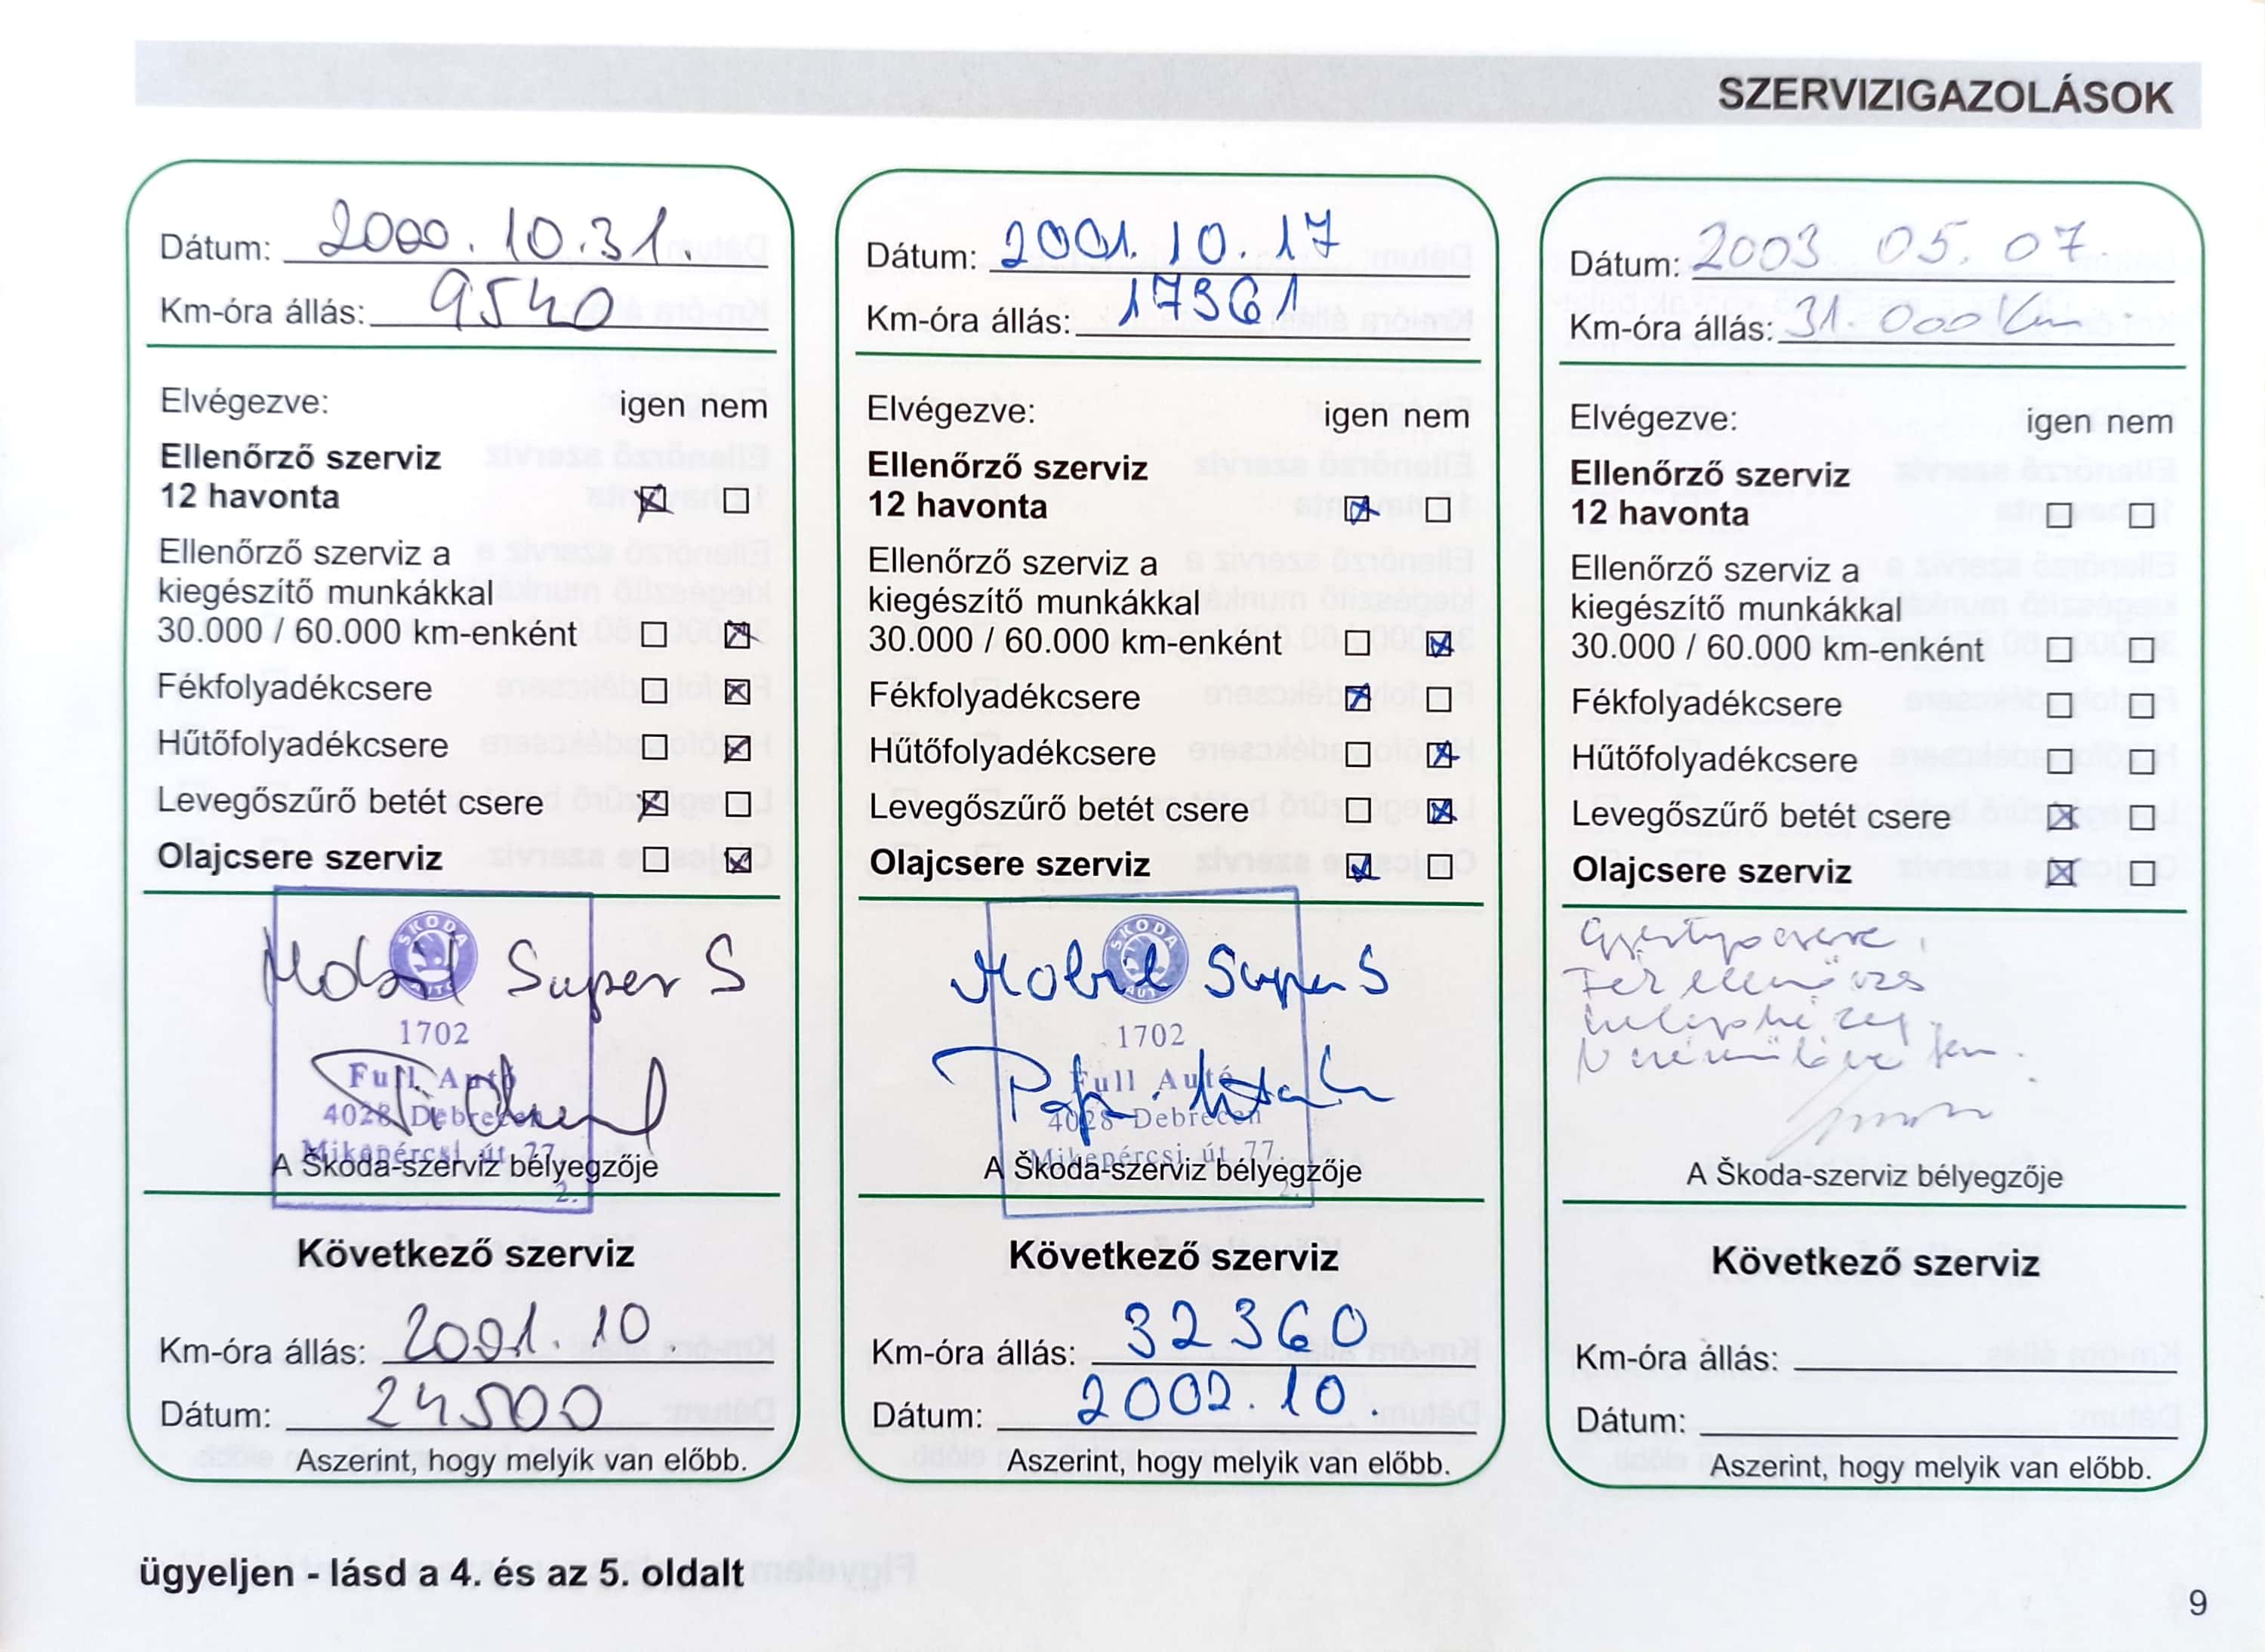 SZERVIZIGAZOLÁSOK
Dátum: 2000.10.31.
Km-óra állás: 9540
Elvégezve: igen nem
Ellenőrző szerviz
12 havonta
Ellenőrző szerviz a
kiegészítő munkákkal
30.000 / 60.000 km-enként
Fékfolyadékcsere
Hűtőfolyadékcsere
Levegőszűrő betét csere
Olajcsere szerviz
ŠKODA
AUTO
Mobil Super S
1702
Full Autó
4028 Debrecen
Mikepércsi út 77.
A Škoda-szerviz bélyegzője
2.
Következő szerviz
Km-óra állás: 2001.10
Dátum: 24500
Aszerint, hogy melyik van előbb.
Dátum: 2001.10.17
Km-óra állás: 17361
Elvégezve: igen nem
Ellenőrző szerviz
12 havonta
Ellenőrző szerviz a
kiegészítő munkákkal
30.000 / 60.000 km-enként
Fékfolyadékcsere
Hűtőfolyadékcsere
Levegőszűrő betét csere
Olajcsere szerviz
ŠKODA
AUTO
Mobil Super S
1702
Full Autó
4028 Debrecen
Mikepércsi út 77.
A Škoda-szerviz bélyegzője
2.
Következő szerviz
Km-óra állás: 32360
Dátum: 2002.10.
Aszerint, hogy melyik van előbb.
Dátum: 2003 05. 07
Km-óra állás: 31.000 km
Elvégezve: igen nem
Ellenőrző szerviz
12 havonta
Ellenőrző szerviz a
kiegészítő munkákkal
30.000 / 60.000 km-enként
Fékfolyadékcsere
Hűtőfolyadékcsere
Levegőszűrő betét csere
Olajcsere szerviz
Gyertyacsere,
Fék ellenőrzés
A Škoda-szerviz bélyegzője
Következő szerviz
Km-óra állás:
Dátum:
Aszerint, hogy melyik van előbb.
ügyeljen - lásd a 4. és az 5. oldalt
9